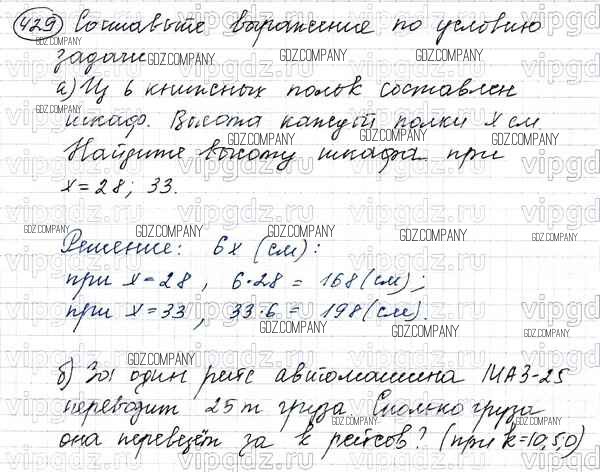 429 Составьте выражение по условию
задачи
а) Из 6 книжных полок составлен
шкаф. Высота каждой полки x см
Найдите высоту шкафа при
x = 28; 33.
Решение: 6x (см):
при x = 28, 6·28 = 168 (см);
при x = 33, 33·6 = 198 (см).
б) За один рейс автомашина МАЗ-25
перевозит 25 т груза. Сколько груза
она перевезёт за k рейсов? (при k=10,5,0)